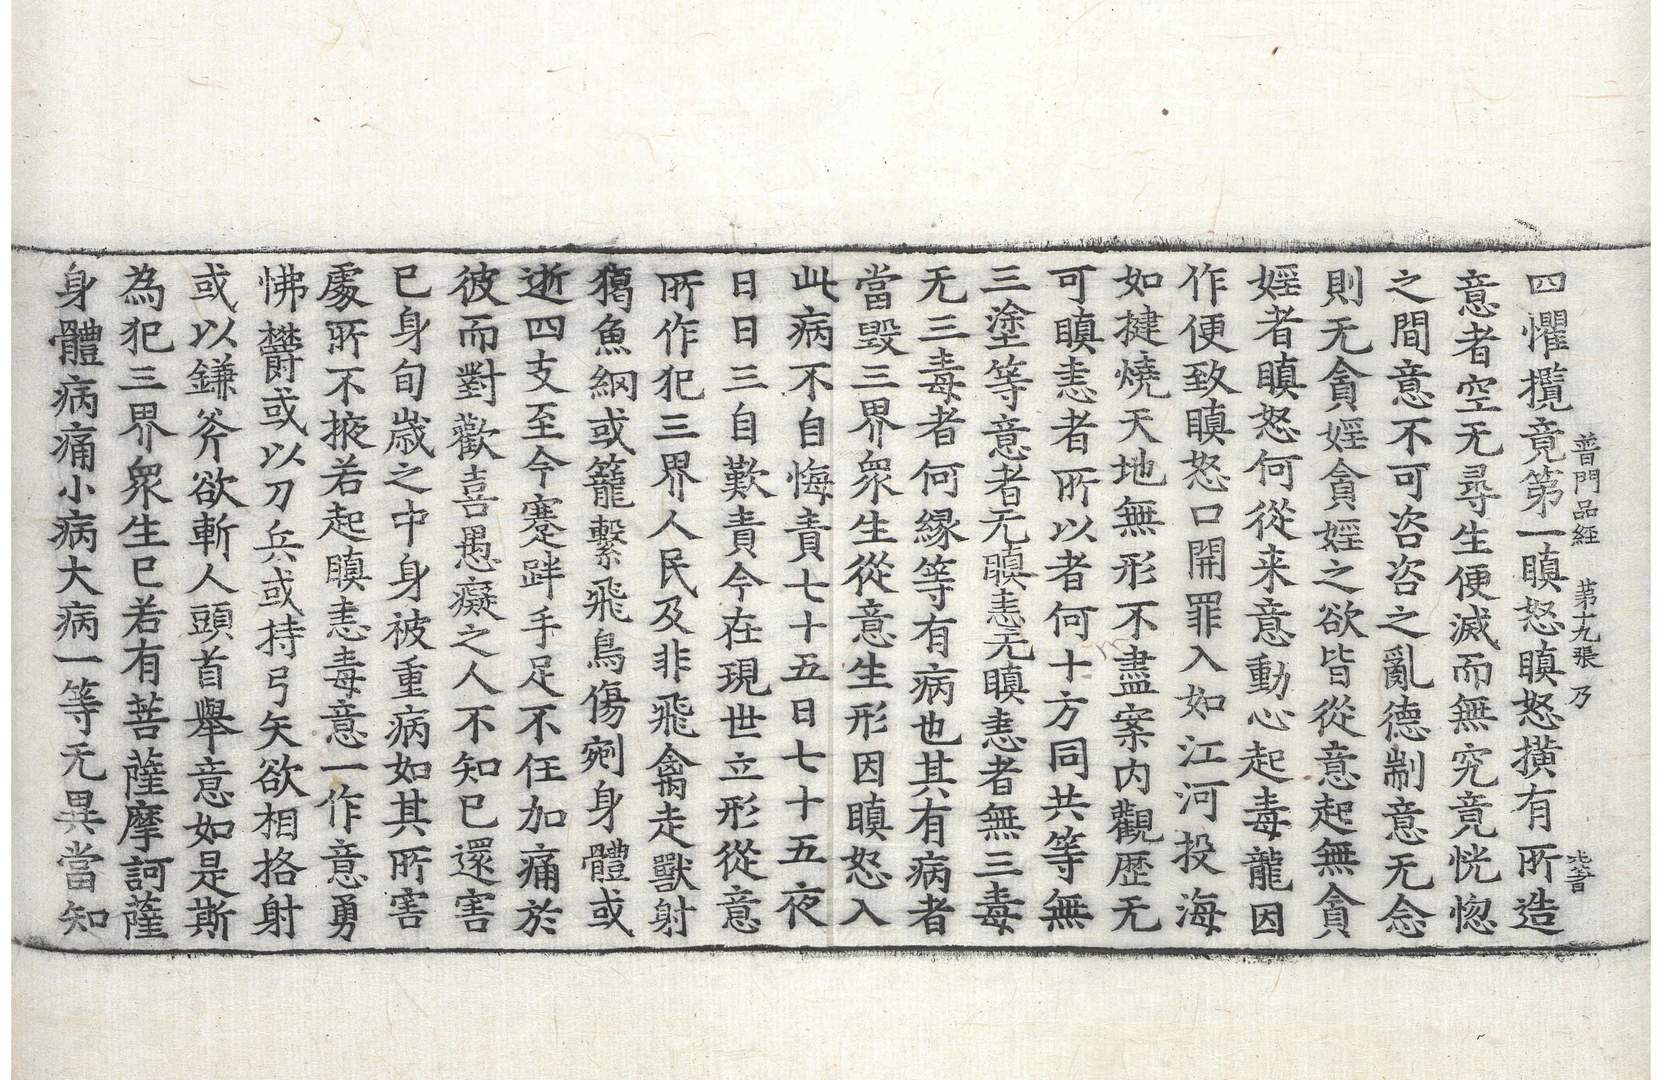 普門品經　第十九張　乃
四懼攬竟第一瞋怒瞋怒撗有所造
意者空无尋生便滅而無究竟恍惚
之間意不可咨咨之亂德制意无念
則无貪婬貪婬之欲皆從意起無貪
婬者瞋怒何從来意動心起毒龍因
作便致瞋怒口開罪入如江河投海
如揵燒天地無形不盡案内觀歷无
可瞋恚者所以者何十方同共等無
三塗等意者无瞋恚无瞋恚者無三毒
无三毒者何縁等有病也其有病者
當毀三界衆生從意生形因瞋怒入
此病不自悔責七十五日七十五夜
日日三自歎責今在現世立形從意
所作犯三界人民及非飛禽走獸射
獦魚網或籠繫飛鳥傷剜身體或
逝四支至今蹇跘手足不任加痛於
彼而對歡喜愚癡之人不知已還害
已身旬歲之中身被重病如其所害
處所不掖若起瞋恚毒意一作意勇
怫欝或以刀兵或持弓矢欲相挌射
或以鎌斧欲斬人頭首舉意如是斯
為犯三界衆生已若有菩薩摩訶薩
身體病痛小病大病一等无異當知